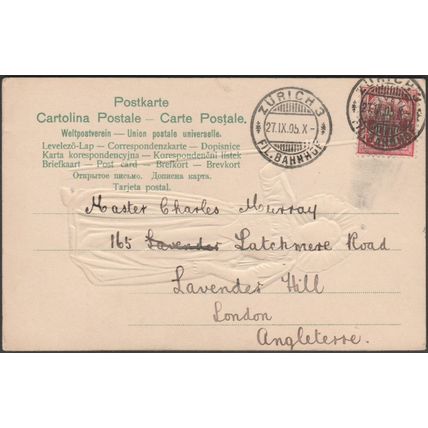 Postkarte
Cartolina Postale – Carte Postale.
Weltpostverein – Union postale universelle.
Levelező-Lap – Correspondenzkarte – Dopisnice
Karta korespondencyjna – Korespondenční lístek
Briefkaart – Post card – Brefkort – Brevkort
Открытое письмо. Дописна карта.
Tarjeta postal.
ZÜRICH 3
27.IX.05.X-
FIL. BAHNHOF
ZÜRICH 3
Master Charles Murray
165 Lavender Latchmere Road
Lavender Hill
London
Angleterre.